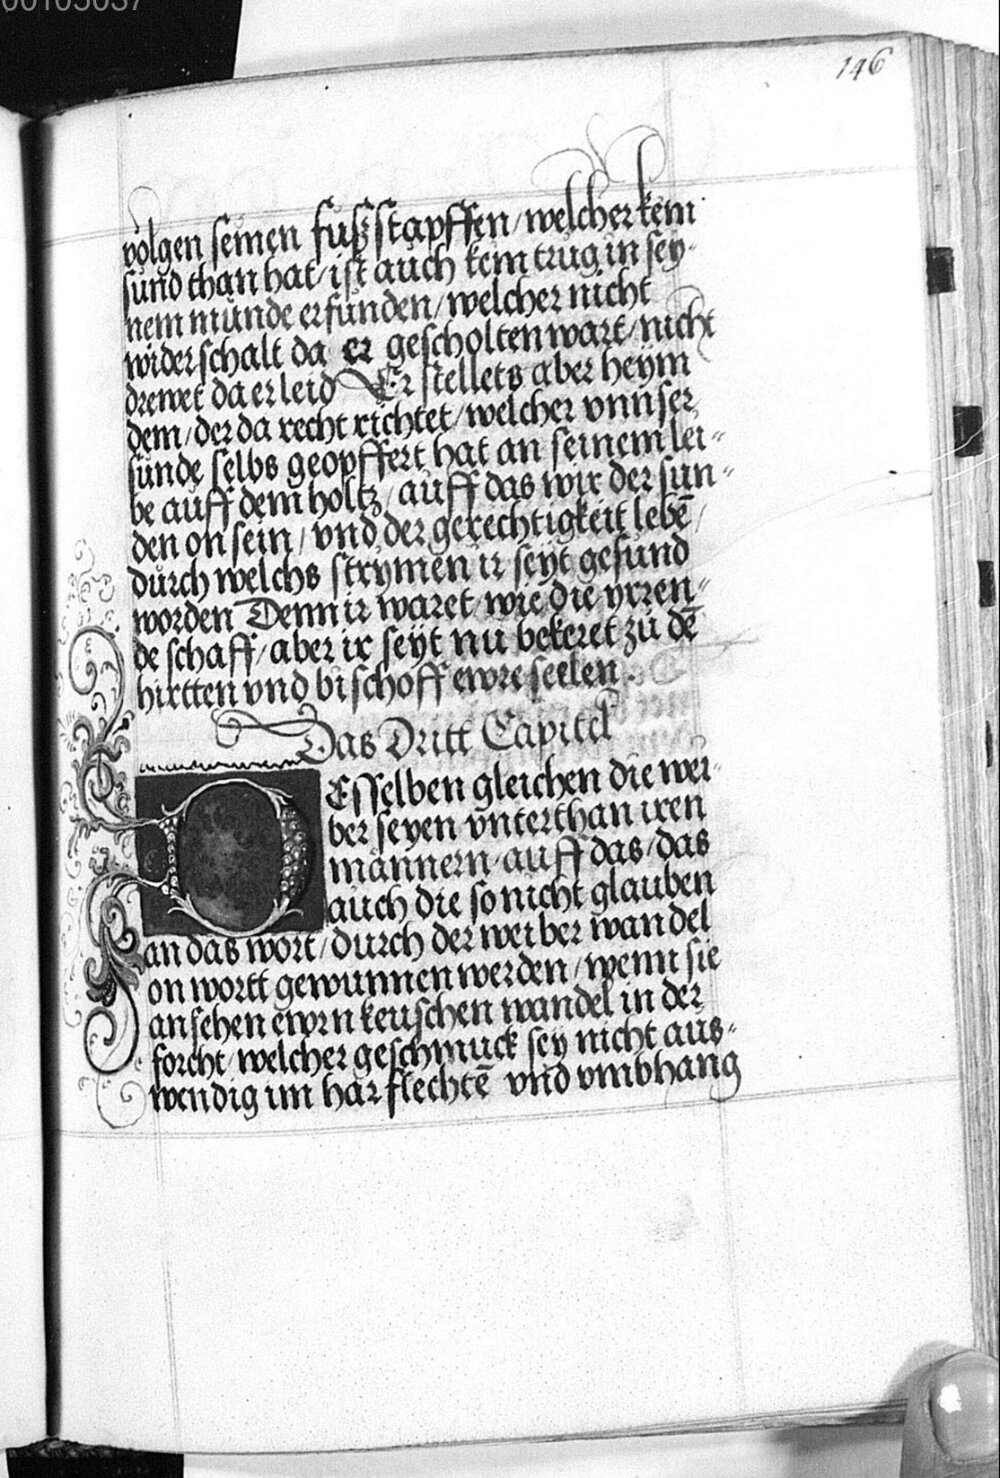 146
volgen seinen fußstapffen/welcher kein
sund than hat/ist auch kein trug in sey-
nem munde erfunden/welcher nicht
widerschalt da er gescholten wart/nicht
drewet da er leid Er stellets aber heym
dem/der da recht richtet/welcher vnnser
sunde selbs geopffert hat an seinem lei-
be auff dem holtz/auff das wir der sun-
den on sein/vnd der gerechtigkeit lebē/
durch welchs strymen ir seyt gesund
worden Denn ir waret/wie die yrren-
de schaff/aber ir seyt nu bekeret zu dē
hirtten vnd bischoff ewre seelen.
Das Dritt Capitel
Desselben gleichen die wei-
ber seyen vnterthan iren
männern/auff das/das
auch die so nicht glauben
an das wort/durch der weiber wandel
on wortt gewunnen werden/wenn sie
ansehen ewrn keuschen wandel in der
forcht/welcher geschmuck sey nicht aus-
wendig im har flechtē vnd vmbhang